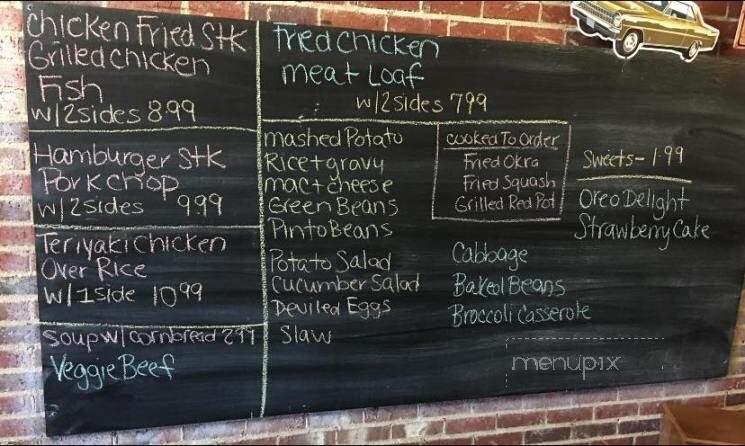 Chicken Fried Stk
Grilled Chicken
Fish
w/2sides 8.99
Hamburger Stk
Pork chop
w/2sides 9.99
Teriyaki Chicken
Over Rice
w/1side 10.99
Soup w/cornbread 2.99
Veggie Beef
Fried Chicken
meat Loaf
w/2sides 7.99
mashed Potato
Rice + gravy
mac + cheese
Green Beans
Pinto Beans
Potato Salad
Cucumber Salad
Deviled Eggs
Slaw
Cooked To Order
Fried Okra
Fried Squash
Grilled Red Pot
Cabbage
Baked Beans
Broccoli Casserole
Sweets - 1.99
Oreo Delight
Strawberry Cake
menupix